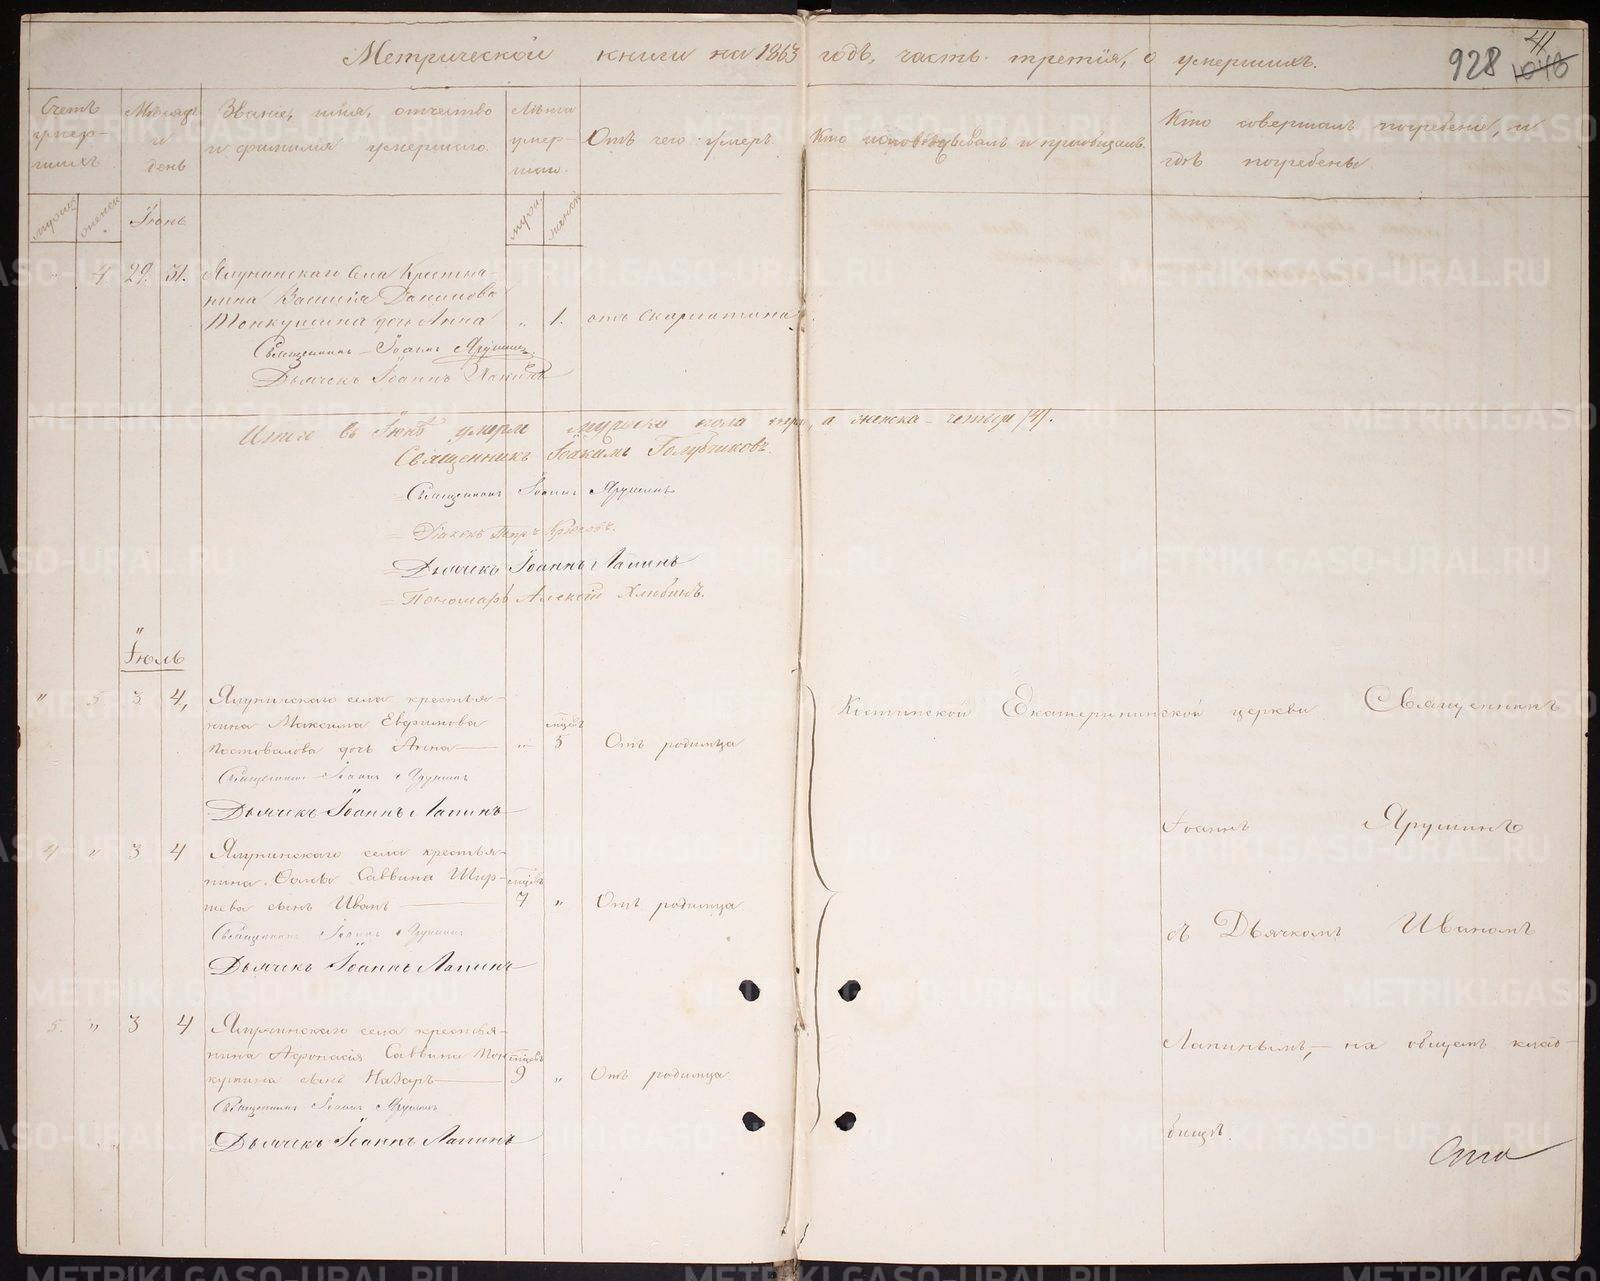 Метрической книги на 1863 годъ, часть третія, о умершихъ.
928
41
1040
Счетъ умер-шихъ.
Мѣсяцъ и день
Званіе, имя, отчество и фамилія умершаго.
Лѣта умер-шаго.
Отъ чего умеръ.
Кто исповѣдывалъ и пріобщалъ.
Кто совершалъ погребеніе, и гдѣ погребены.
Іюнь
" 4 29. 31. Ялунинскаго села Крестья-
нина Василія Данилова
дочь Анна " 1. отъ скарлатины.
Священникъ Іоаннъ Ярушинъ
Дьячекъ Іоаннъ Лапинъ
Итого въ Іюнѣ умерло мужеска пола три, а женска – четыре /4/.
Священникъ Іоакимъ Голубчиковъ.
Священникъ Іоаннъ Ярушинъ
Діаконъ Петръ
Дьячекъ Іоаннъ Лапинъ
Пономарь Алексій Хлюбинъ.
Іюль
" 5 3 4, Ялунинскаго села крестья-
нина Максима Евфимова
Постовалова дочь Анна " мѣсяцъ 5 Отъ родимца
Священникъ Іоаннъ Ярушинъ
Дьячекъ Іоаннъ Лапинъ
4 " 3 4 Ялунинскаго села крестья-
нина Саввина Шир-
сынъ Иванъ 7 " Отъ родимца
Священникъ Іоаннъ Ярушинъ
Дьячекъ Іоаннъ Лапинъ
5. " 3 4 Ялунинскаго села крестья-
нина Афонасія Саввина Тон-
кушина сынъ Назаръ 9 " Отъ родимца
Священникъ Іоаннъ Ярушинъ
Дьячекъ Іоаннъ Лапинъ
Костинской Екатерининской церкви Священникъ
Іоаннъ Ярушинъ
съ Дьячкомъ Иваномъ
Лапинымъ, – на общемъ клад-
бищѣ.
METRIKI.GASO-URAL.RU